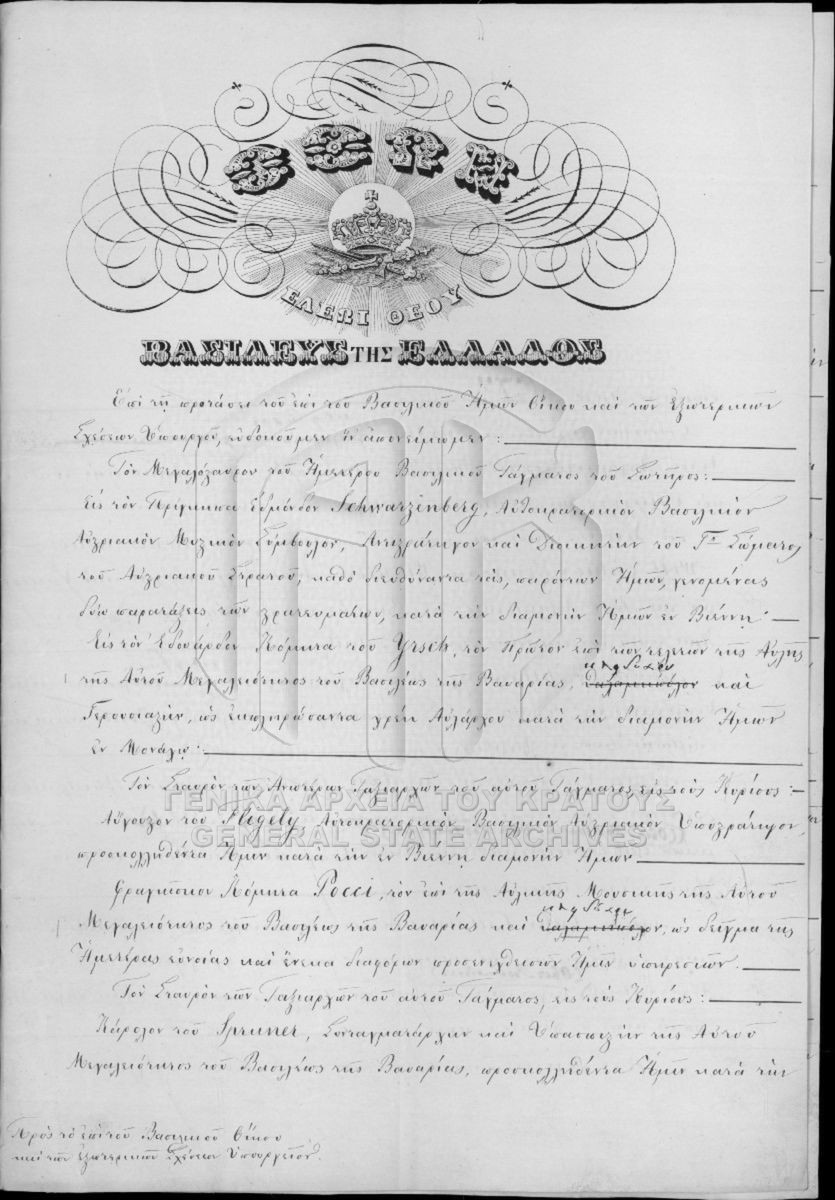 ΟΘΩΝ
ΕΛΕΩΙ ΘΕΟΥ
ΒΑΣΙΛΕΥΣ ΤΗΣ ΕΛΛΑΔΟΣ
Ἐπὶ τῇ προτάσει τοῦ ἐπὶ τοῦ Βασιλικοῦ Ἡμῶν Οἴκου καὶ τῶν ἐξωτερικῶν
Σχέσεων Ὑπουργοῦ, εὐδοκοῦμεν ν' ἀπονείμωμεν:
Τὸν Μεγαλόσταυρον τοῦ Ἡμετέρου Βασιλικοῦ Τάγματος τοῦ Σωτῆρος:
Εἰς τὸν Πρίγκηπα Ἐδμόνδον Schwarzenberg, Αὐτοκρατορικὸν Βασιλικὸν
Αὐστριακὸν Μυστικὸν Σύμβουλον, Ἀντιστράτηγον καὶ Διοικητὴν τοῦ Γου Σώματος
τοῦ Αὐστριακοῦ Στρατοῦ, καθὸ διευθύναντα τὰς, παρόντων Ἡμῶν, γενομένας
δύω παρατάξεις τῶν στρατευμάτων, κατὰ τὴν διαμονὴν Ἡμῶν ἐν Βιέννῃ.
Εἰς τὸν Ἐδουάρδον Κόμητα τοῦ Yrsch, τὸν Πρῶτον ἐπὶ τῶν τελετῶν τῆς Αὐλῆς
τῆς Αὐτοῦ Μεγαλειότητος τοῦ Βασιλέως τῆς Βαυαρίας, θαλαμηπόλον καὶ
Γερουσιαστὴν, ὡς ἐκπληρώσαντα χρέη Αὐλάρχου κατὰ τὴν διαμονὴν Ἡμῶν
ἐν Μονάχῳ:
Τὸν Σταυρὸν τῶν Ἀνωτέρων Ταξιαρχῶν τοῦ αὐτοῦ Τάγματος, εἰς τοὺς Κυρίους:
Αὔγουστον τοῦ Flegely Αὐτοκρατορικὸν Βασιλικὸν Αὐστριακὸν Ὑποστράτηγον,
προσκολληθέντα Ἡμῖν κατὰ τὴν ἐν Βιέννῃ διαμονὴν Ἡμῶν
Φραγκίσκον Κόμητα Pocci, τὸν ἐπὶ τῆς Αὐλικῆς Μουσικῆς τῆς Αὐτοῦ
Μεγαλειότητος τοῦ Βασιλέως τῆς Βαυαρίας καὶ θαλαμηπόλον, ὡς δεῖγμα τῆς
Ἡμετέρας εὐνοίας καὶ ἕνεκα διαφόρων προσενεχθεισῶν Ἡμῖν ὑπηρεσιῶν.
Τὸν Σταυρὸν τῶν Ταξιαρχῶν τοῦ αὐτοῦ Τάγματος, εἰς τοὺς Κυρίους:
Κάρολον τοῦ Spruner, Συνταγματάρχην καὶ Ὑπασπιστὴν τῆς Αὐτοῦ
Μεγαλειότητος τοῦ Βασιλέως τῆς Βαυαρίας, προσκολληθέντα Ἡμῖν κατὰ τὴν
Πρὸς τὸ ἐπὶ τοῦ Βασιλικοῦ Οἴκου
καὶ τῶν ἐξωτερικῶν Σχέσεων Ὑπουργεῖον.
ΓΕΝΙΚΑ ΑΡΧΕΙΑ ΤΟΥ ΚΡΑΤΟΥΣ
GENERAL STATE ARCHIVES